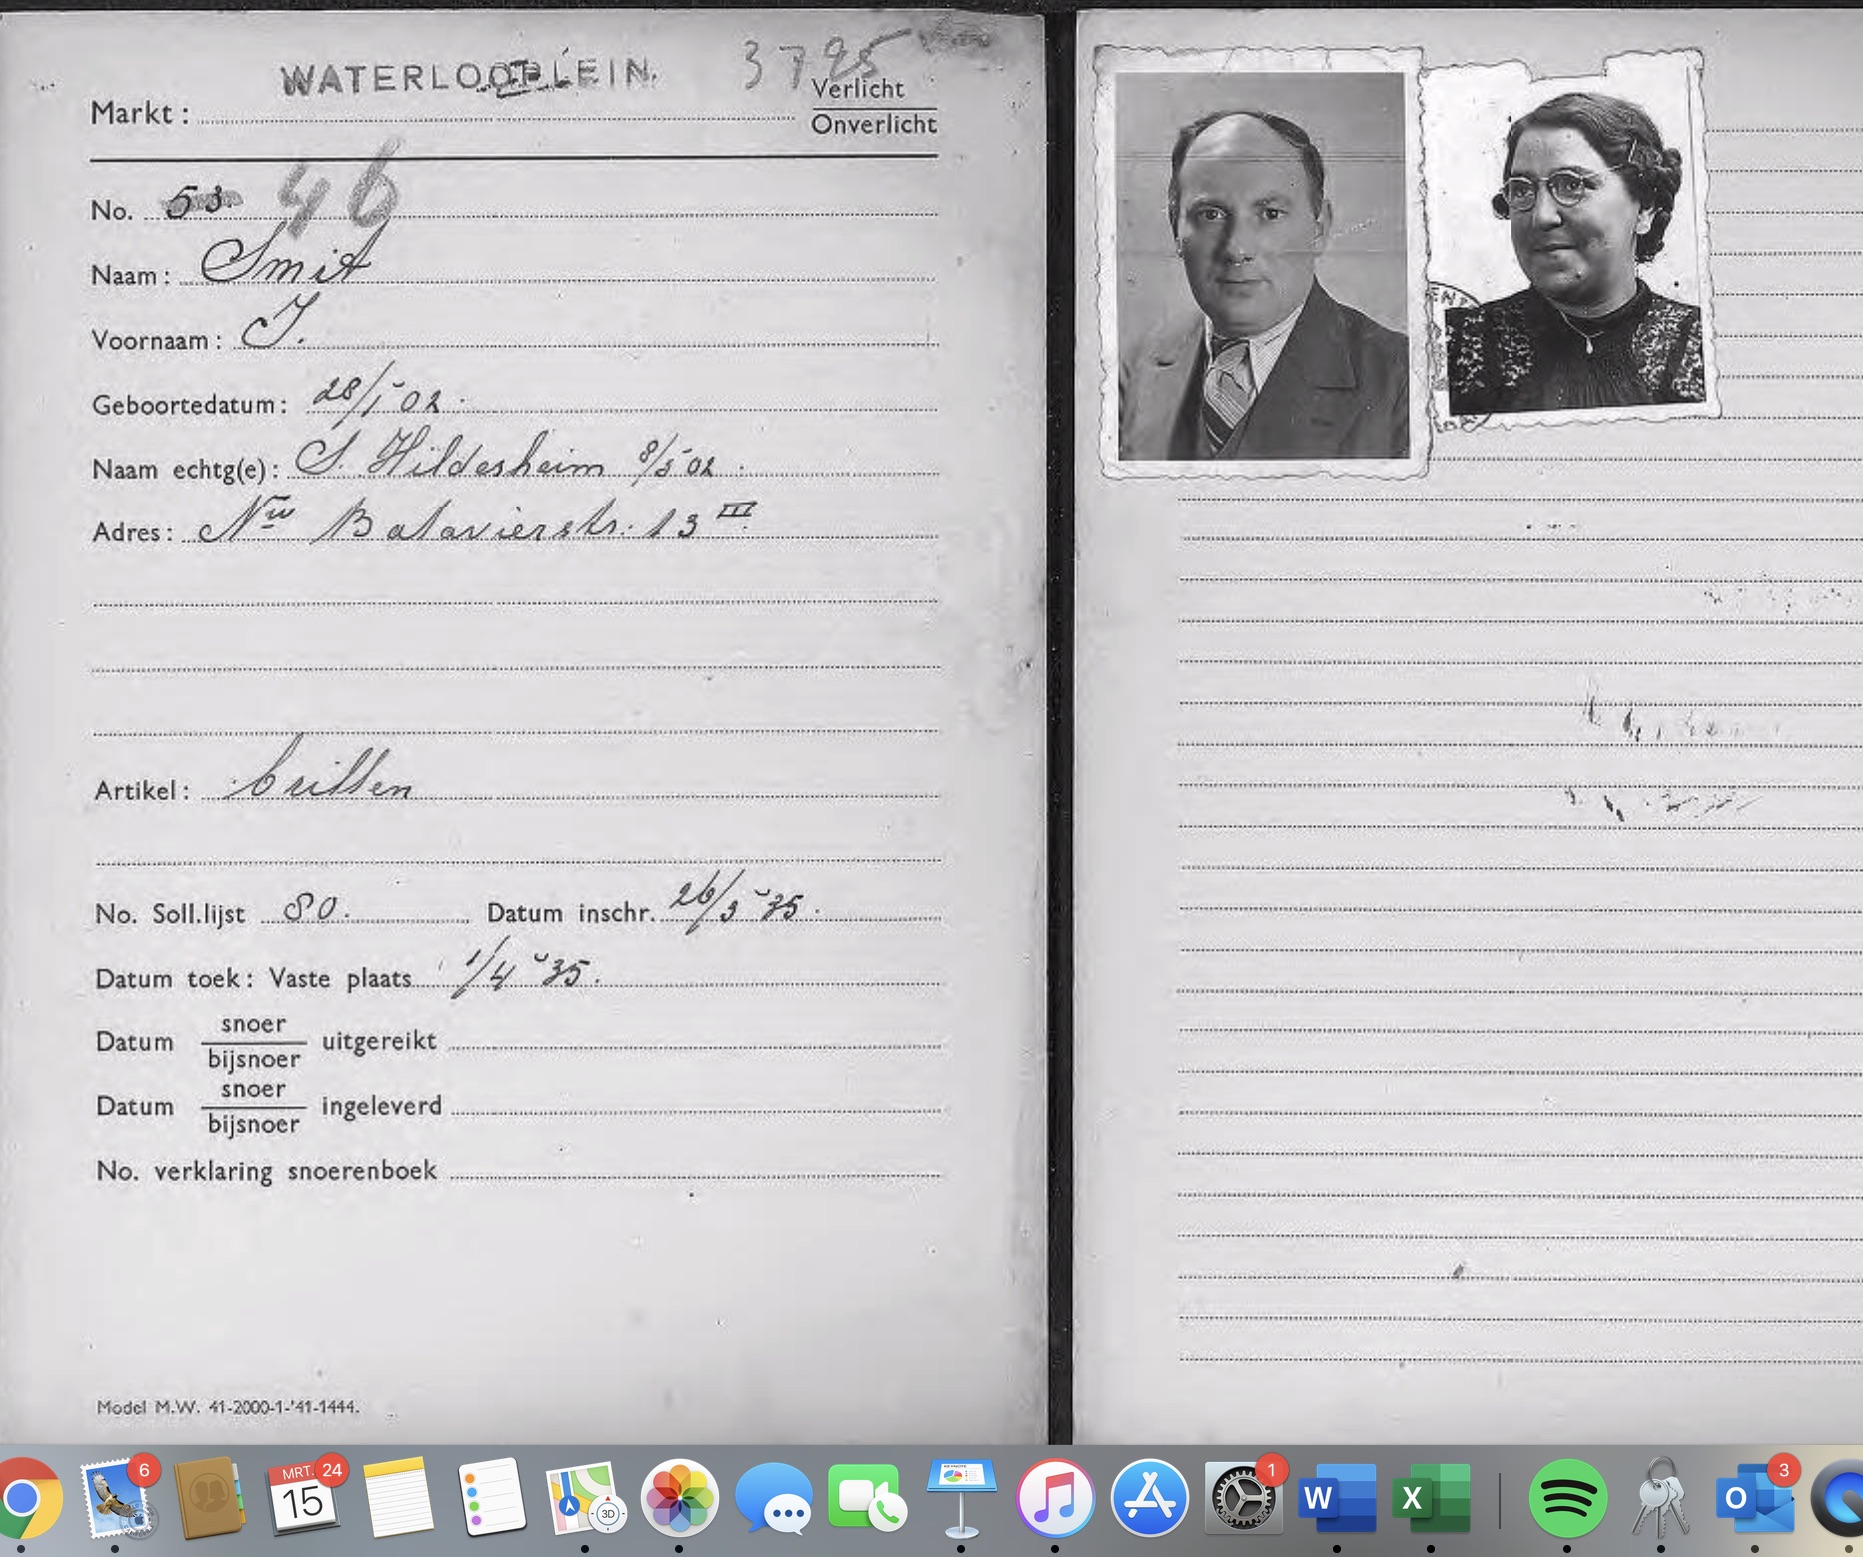 WATERLOOPLEIN.
3795
Markt :
Verlicht
Onverlicht
No. 53. 46
Naam : Smit
Voornaam : I.
Geboortedatum : 28/1 02.
Naam echtg(e) : S. Hildesheim 8/5 02.
Adres : Nw Batavierstr. 13 III
Artikel : brillen
No. Soll.lijst 80. Datum inschr. 26/3 '35.
Datum toek : Vaste plaats 1/4 '35.
Datum snoer/bijsnoer uitgereikt
Datum snoer/bijsnoer ingeleverd
No. verklaring snoerenboek
Model M.W. 41-2000-1-'41-1444.
6
MRT. 24
15
3D
KEYNOTE
1
W
X
O
3